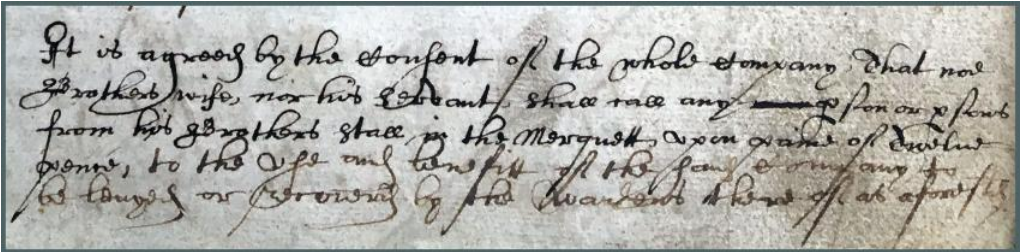 It is agreed by the Consent of the whole Company That noe
Brothers wife, nor his Servant, shall call any pson or psons
from his Brothers stall in the Merquett, upon paine of Twelve
pence, to the Use and benefitt of the said Company to
be levyed or recovered by the Wardens there of as aforesd